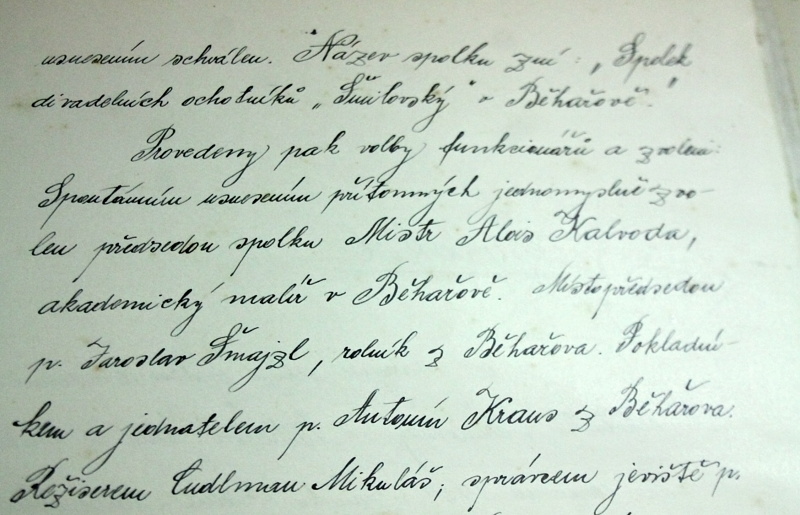 usnesením schválen. Název spolku zní: „Spolek
divadelních ochotníků „Šmilovský" v Běhařově."
Provedeny pak volby funkcionářů a zvoleni:
Spontánním usnesením přítomných jednomyslně zvo-
len předsedou spolku Mistr Alois Kalvoda,
akademický malíř v Běhařově. Místopředsedou
p. Jaroslav Šmajzl, rolník z Běhařova. Pokladní-
kem a jednatelem p. Antonín Kraus z Běhařova.
Režiserem Cudlman Mikuláš, správcem jeviště p.